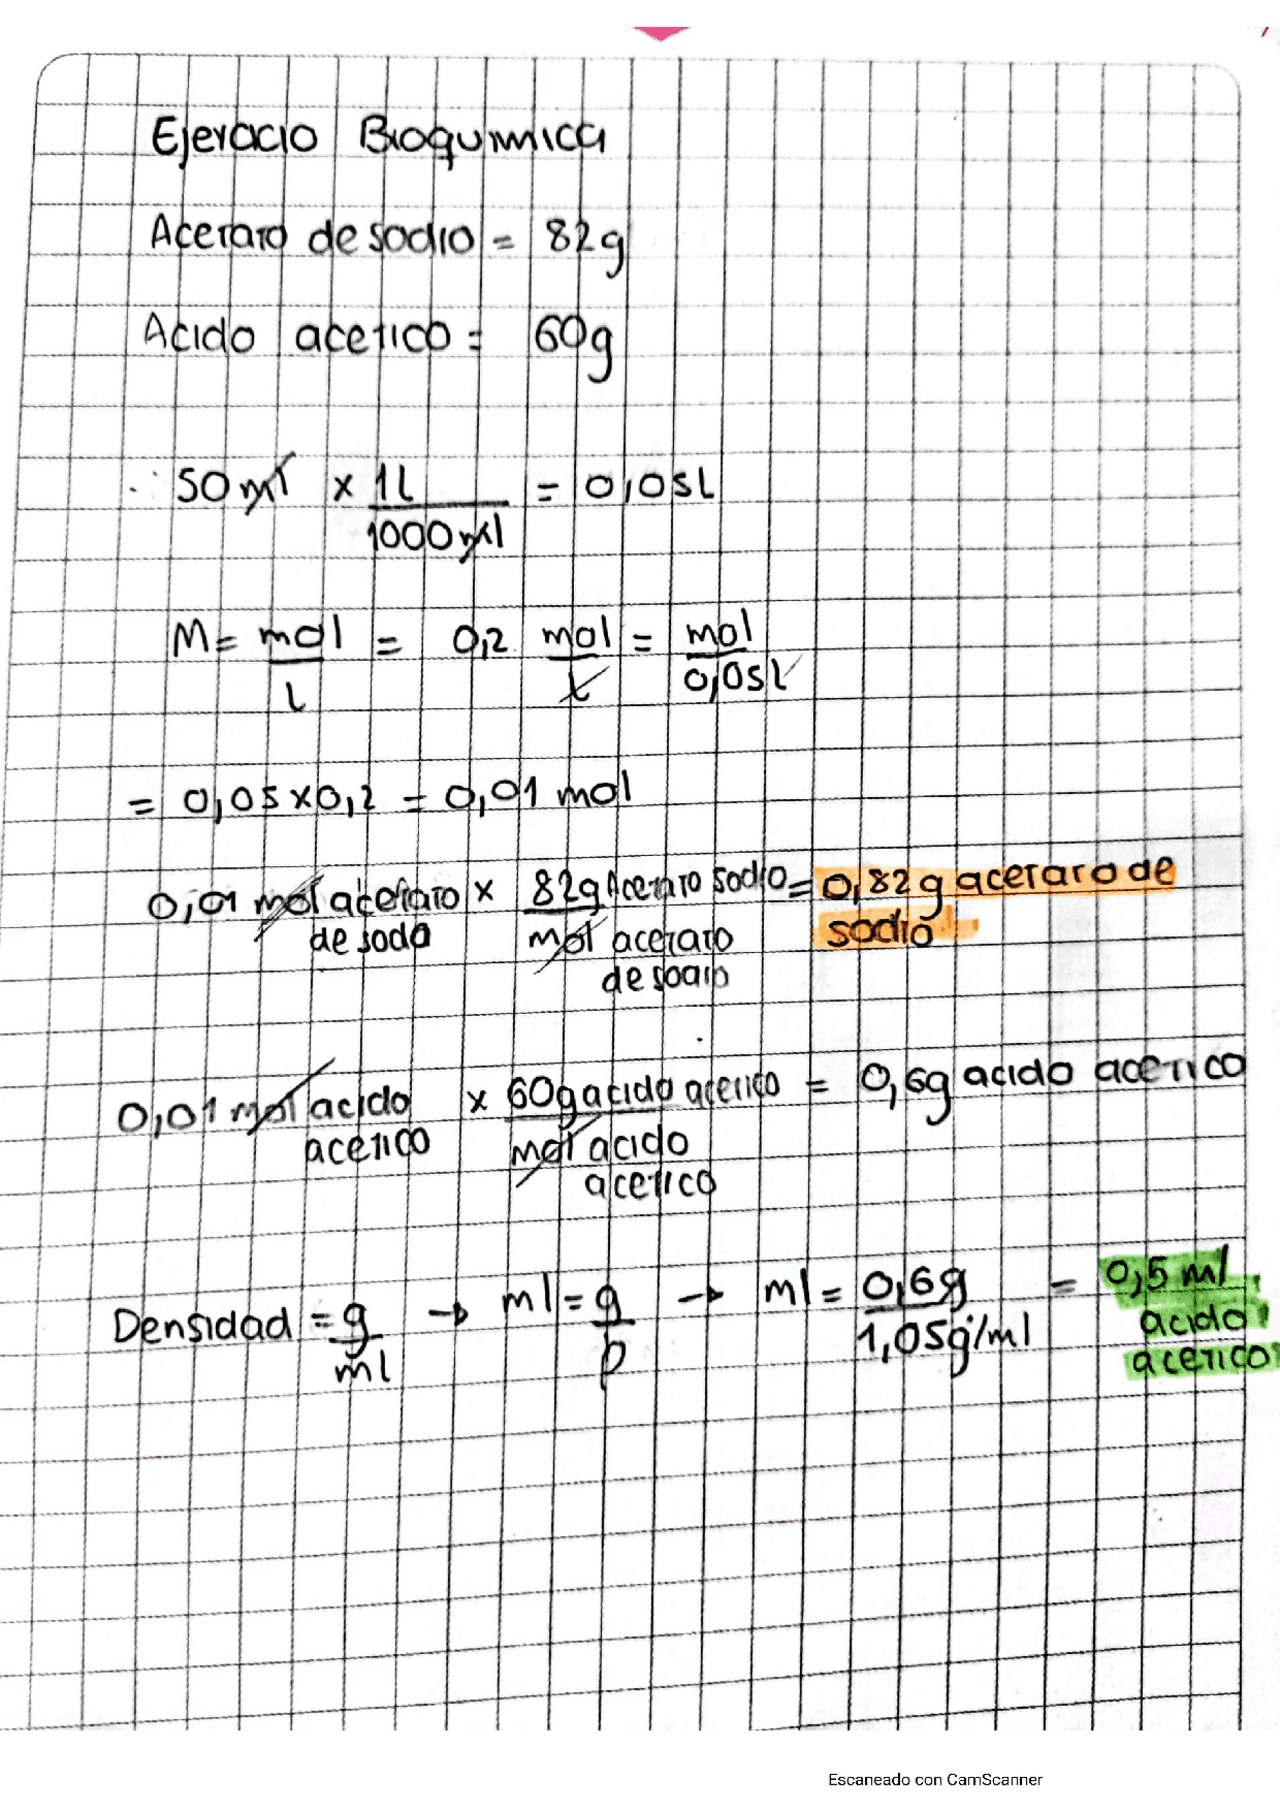 Ejercicio Bioquimica
Acetato de sodio = 82g
Acido acetico = 60g
50 ml x 1L / 1000 ml = 0,05L
M = mol / L = 0,2 mol / L = mol / 0,05L
= 0,05 x 0,2 = 0,01 mol
0,01 mol acetato de sodio x 82g Acetato sodio / mol acetato de sodio = 0,82 g acetato de sodio
0,01 mol acido acetico x 60g acido acetico / mol acido acetico = 0,6g acido acetico
Densidad = g / ml → ml = g / ρ → ml = 0,6g / 1,05g/ml = 0,5 ml acido acetico
Escaneado con CamScanner